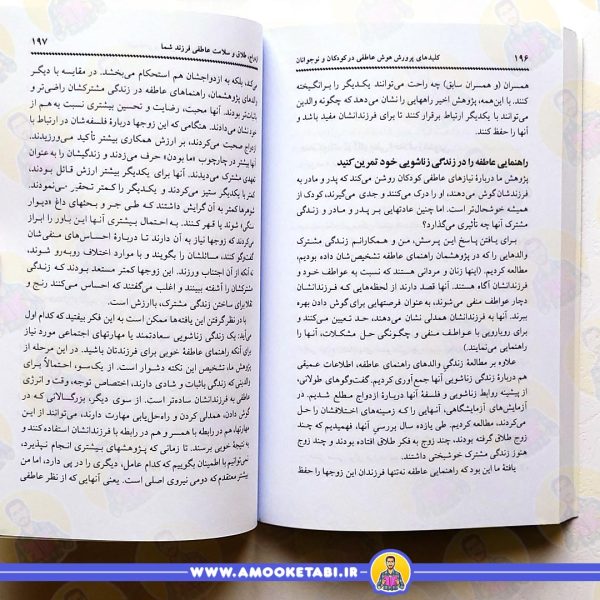 ۱۹۶
کلیدهای پرورش هوش عاطفی در کودکان و نوجوانان
همسران (و همسران سابق) چه راحت می‌توانند یکدیگر را برانگیخته
کنند. با این‌همه، پژوهش اخیر راههایی را نشان می‌دهد که چگونه والدین
می‌توانند با یکدیگر ارتباط برقرار کنند تا برای فرزندانشان مفید باشد و
آنها را حفظ کنند.
راهنمایی عاطفه را در زندگی زناشویی خود تمرین کنید
پژوهش ما دربارهٔ نیازهای عاطفی کودکان روشن می‌کند که پدر و مادر به
فرزندشان گوش می‌دهند، او را درک می‌کنند و جدی می‌گیرند، کودک از
همیشه خوشحال‌تر است. اما چنین عادتهایی بر پدر و مادر و زندگی
مشترک آنها چه تأثیری می‌گذارد؟
برای یافتن پاسخ این پرسش، من و همکارانم زندگی مشترک
والدهایی را که در پژوهشمان راهنمای عاطفه تشخیص‌شان داده بودیم،
مطالعه کردیم. (اینها زنان و مردانی هستند که نسبت به عواطف خود و
فرزندانشان آگاه هستند. آنها قصد دارند از لحظه‌هایی که فرزندانشان
دچار عواطف منفی می‌شوند، به‌عنوان فرصتهایی برای گوش دادن بهره
ببرند. آنها به فرزندانشان همدلی نشان می‌دهند، حد تعیین می‌کنند و
برای رویارویی با عواطف منفی و چگونگی حل مشکلات، آنها را
راهنمایی می‌نمایند.)
علاوه بر مطالعهٔ زندگی والدهای راهنمای عاطفه، اطلاعات عمیقی
هم دربارهٔ زندگی زناشویی آنها جمع‌آوری کردیم. گفت‌وگوهای طولانی،
از پیشینه روابط زناشویی و فلسفهٔ آنها دربارهٔ ازدواج مطلع شدیم. در
آزمایش‌های آزمایشگاهی، آنهایی را که زمینه‌های اختلافشان را حل
می‌کردند، مطالعه کردیم. طی یازده سال بررسیِ آنها، فهمیدیم که چند
زوج طلاق گرفته بودند، چند زوج به فکر طلاق افتاده بودند و چند زوج
هنوز زندگی مشترک خوشبختی داشتند.
یافتهٔ ما این بود که راهنمایی عاطفه نه‌تنها فرزندان این زوجها را حفظ
طلاق و سلامت عاطفی فرزند شما
۱۹۷
بلکه به ازدواجشان هم استحکام می‌بخشد. در مقایسه با دیگر
والدهای پژوهشمان، راهنماهای عاطفه در زندگی مشترکشان راضی‌تر و
بودند. آنها محبت، رضایت و تحسین بیشتری نسبت به هم از
خود نشان می‌دادند. هنگامی که این زوجها دربارهٔ فلسفه‌شان در ارتباط با
ازدواج صحبت می‌کردند، بر ارزش همکاری بیشتر تأکید می‌ورزیدند.
آنها بیشتر در چارچوب «ما بودن» حرف می‌زدند و زندگیشان را به عنوان
تعهدی مشترک می‌دیدند. آنها برای یکدیگر بیشتر ارزش قائل بودند،
کمتر با یکدیگر ستیز می‌کردند و یکدیگر را کمتر تحقیر می‌نمودند.
شوهرها کمتر به آن گرایش داشتند که طی جر و بحثهای داغ «دیوار
شوند و قهر کنند. به احتمال بیشتری آنها این باور را ابراز
می‌کردند که زوجها نیاز به آن دارند تا دربارهٔ احساس‌های منفی‌شان
گفت‌وگو کنند، مسائلشان را بگویند و با موارد اختلاف روبه‌رو شوند،
نه آنکه از آن اجتناب ورزند. این زوجها کمتر مستعد بودند که زندگی
مشترکشان را آشفته ببینند و اغلب می‌گفتند که احساس می‌کنند رنج و
تقلا برای ساختن زندگی مشترک، باارزش است.
با در نظر گرفتن این یافته‌ها ممکن است به این فکر بیفتید که کدام اول
می‌آید: یک زندگی زناشویی سعادتمند یا مهارتهای اجتماعی مورد نیاز
برای آنکه راهنمای عاطفهٔ خوبی برای فرزندتان باشید. در این مرحله از
پژوهش ما، تشخیص این نکته دشوار است. از یک‌سو، احتمالاً برای
والدینی که زندگی باثبات و شادی دارند، اختصاص توجه، وقت و انرژی
عاطفی به فرزندانشان ساده‌تر است. از سوی دیگر، بزرگسالانی که در
گوش دادن، همدلی کردن و راه‌حل‌یابی مهارت دارند، می‌توانند از این
مهارتها، هم در رابطه با همسر و هم در رابطه با فرزندانشان استفاده کنند و
به نتیجهٔ خوبی برسند. تا زمانی که پژوهشهای بیشتری انجام نپذیرد،
نمی‌توانیم با اطمینان بگوییم که کدام عامل، دیگری را در پی دارد، اما من
بیشتر معتقدم که دومی نیروی اصلی است. یعنی آنهایی که از نظر عاطفی
WWW.AMOOKETABI.IR